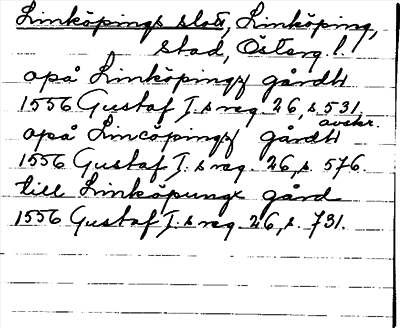 Linköpings slott, Linköping,
stad, Österg.l.
opå Linköpingz gårdh
1556 Gustaf I:s reg. 26, s. 531.
avskr.
opå Lincöpingz gårdh
1556 Gustaf I:s reg. 26, s. 576.
till Linköpungx gård
1556 Gustaf I:s reg. 26, s. 731.